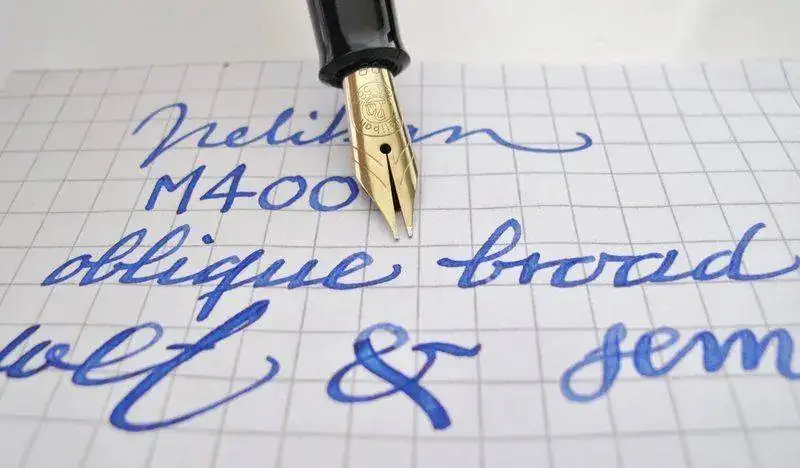 Pelikan
M400
oblique broad
wet & sem